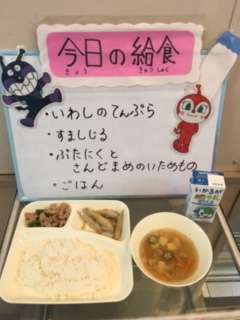 今日の給食
きょう きゅうしょく
・いわしのてんぷら
・すましじる
・ぶたにくと
さんどまめのいためもの
・ごはん